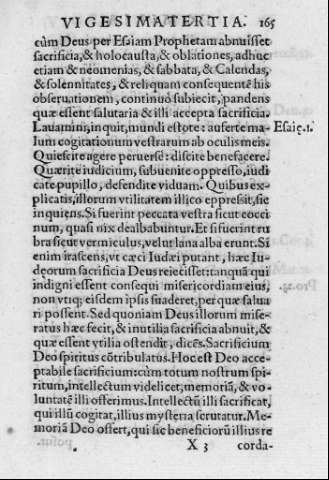 VIGESIMATERTIA. 165
cùm Deus per Esaiam Prophetam abnuisset
sacrificia, & holocausta, & oblationes, adhuc
etiam & neomenias, & sabbata, & Calendas,
& solennitates, & reliquam consequentẽ his
obseruationem, continuò subiecit, pandens
quæ essent salutaria & illi accepta sacrificia.
Lauamini, inquit, mundi estote: auferte ma- Esaię.1.
lum cogitationum vestrarum ab oculis meis.
Quiescite agere peruersè: discite benefacere.
Quærite iudicium, subuenite oppresso, iudi
cate pupillo, defendite viduam. Quibus ex-
plicatis, illorum vtilitatem illico expressit, sic
inquiẽns. Si fuerint peccata vestra sicut cocci
num, quasi nix dealbabuntur. Et si fuerint ru
bra sicut vermiculus, velut lana alba erunt. Si
enim irascens, vt cæci Iudæi putant, hæc Iu-
deorum sacrificia Deus reiecisset: tanquã qui
indigni essent consequi misericordiam eius,
non vtiq; eisdem ipsis suaderet, per quæ salua
ri possent. Sed quoniam Deus illorum mise-
ratus hæc fecit, & inutilia sacrificia abnuit, &
quæ essent vtilia ostendit, dicẽs. Sacrificium
Deo spiritus cõtribulatus. Hoc est Deo acce-
ptabile sacrificium: cùm totum nostrum spi-
ritum, intellectum videlicet, memoriã, & vo-
luntatẽ illi offerimus. Intellectũ illi sacrificat,
qui illũ cogitat, illius mysteria scrutatur. Me-
moriã Deo offert, qui sic beneficiorũ illius re
X 3 corda-